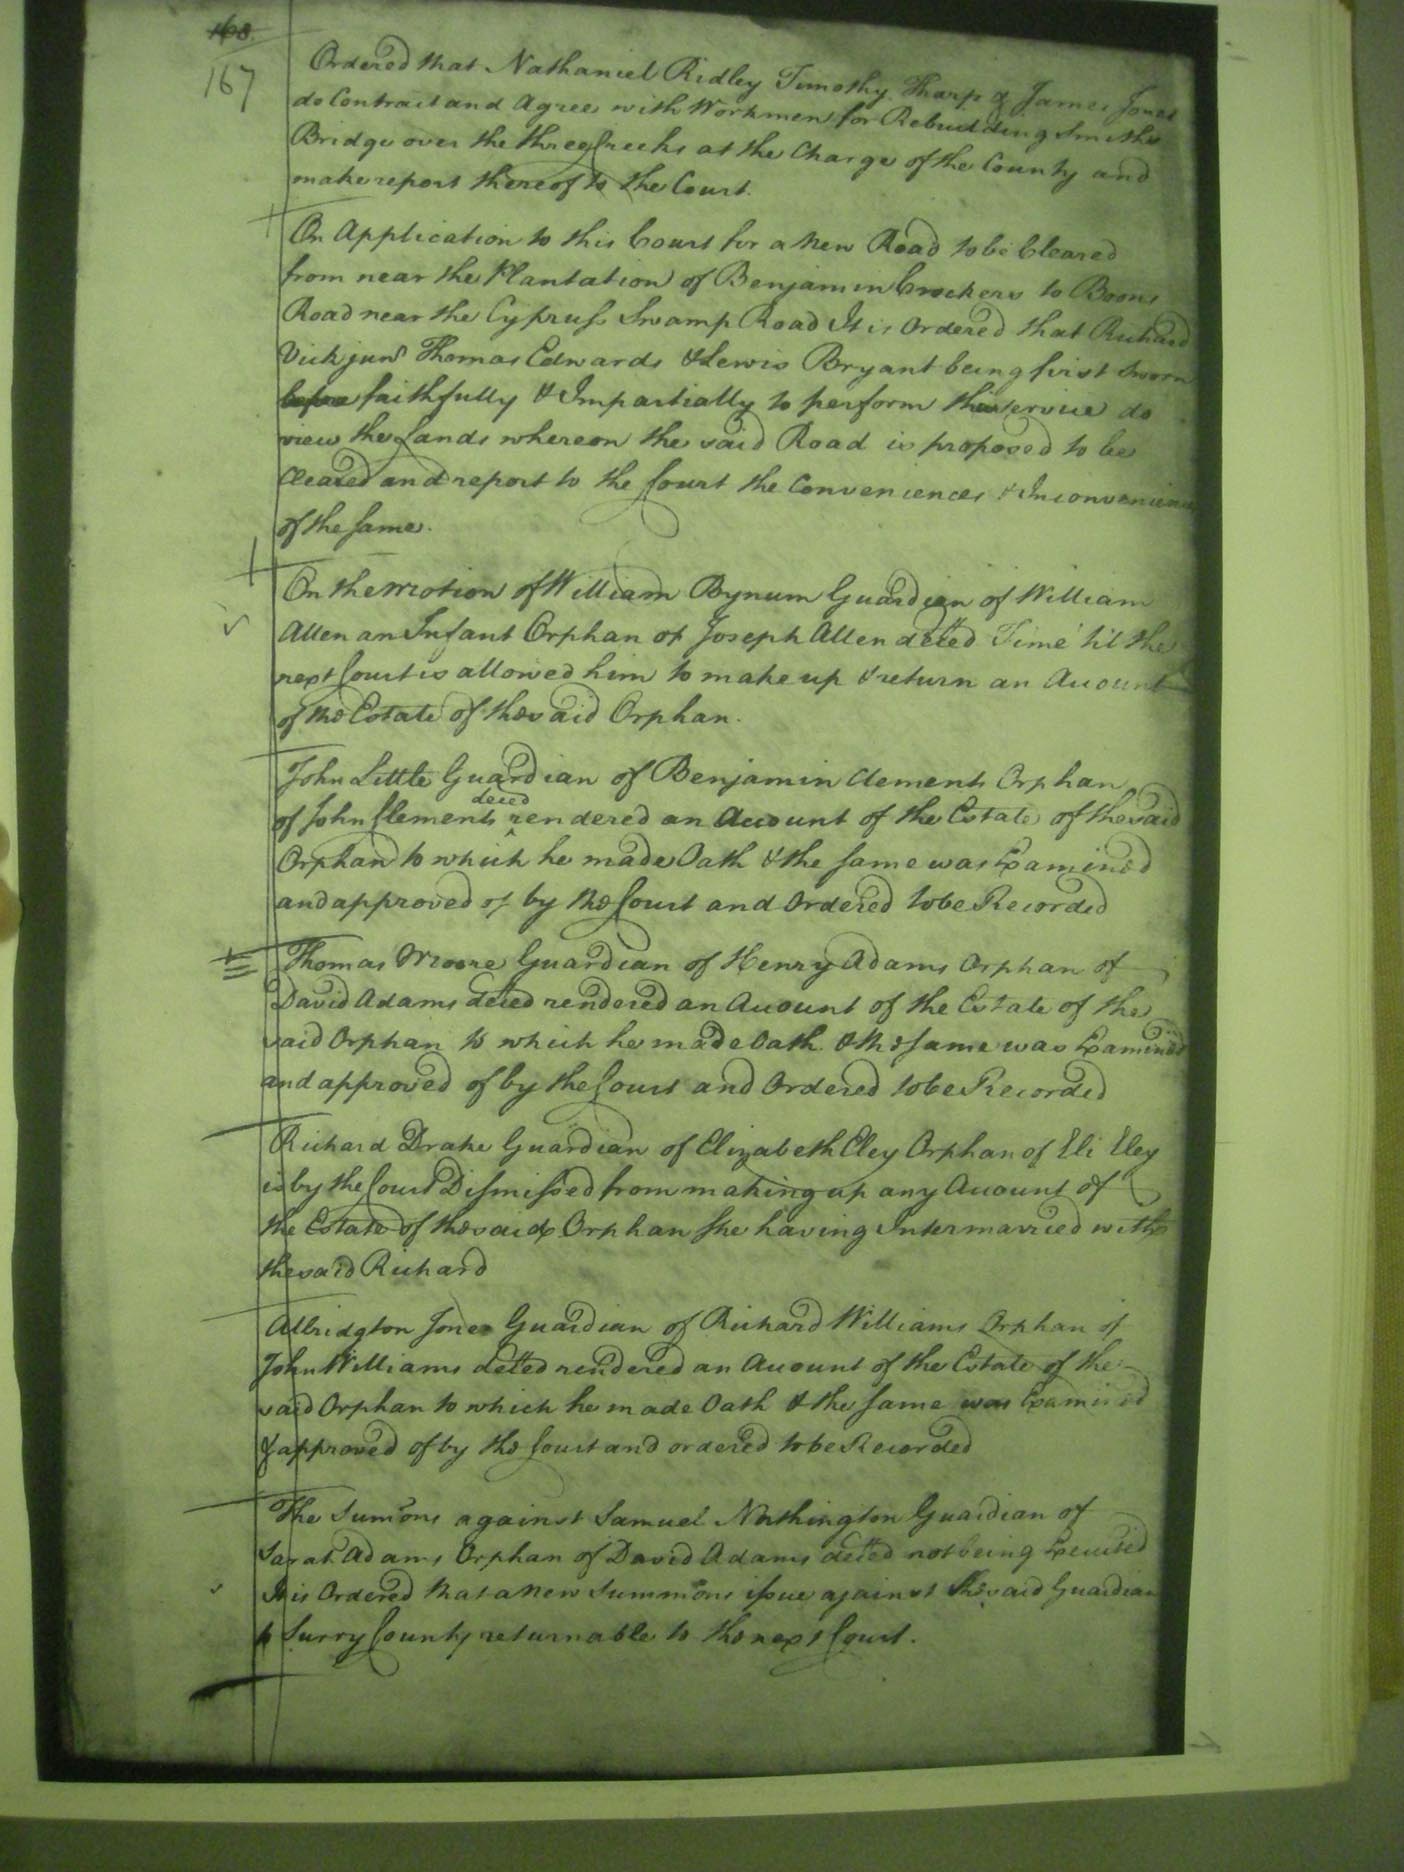 168
167
Ordered that Nathaniel Ridley Timothy Tharp & James Jones
do Contract and Agree with Workmen for Rebuilding Smiths
Bridge over the three Creeks at the Charge of the County and
make report thereof to the Court.
On Application to this Court for a New Road to be Cleared
from near the Plantation of Benjamin Crockers to Boons
Road near the Cypruss Swamp Road It is Ordered that Richard
Vick junr Thomas Edwards & Lewis Bryant being first Sworn
before faithfully & Impartially to perform this service do
view the Lands whereon the said Road is proposed to be
Cleared and report to the Court the Conveniences & Inconvenience
of the same.
On the Motion of William Bynum Guardian of William
Allen an Infant Orphan of Joseph Allen deced Time til the
next Court is allowed him to make up & return an Account
of the Estate of the said Orphan.
John Little Guardian of Benjamin Clements Orphan
of John Clements deced rendered an Account of the Estate of the said
Orphan to which he made Oath & the same was Examined
and approved of by the Court and Ordered to be Recorded
Thomas Moore Guardian of Henry Adams Orphan of
David Adams deced rendered an Account of the Estate of the
said Orphan to which he made Oath & the same was Examined
and approved of by the Court and Ordered to be Recorded
Richard Drake Guardian of Elizabeth Eley Orphan of Eli Eley
is by the Court Dismissed from making up any Account of
the Estate of the said Orphan She having Intermarried with
the said Richard
Albridgton Jones Guardian of Richard Williams Orphan of
John Williams deced rendered an Account of the Estate of the
said Orphan to which he made Oath & the same was Examined
& approved of by the Court and ordered to be Recorded
The Sumons against Samuel Northington Guardian of
Sarah Adams Orphan of David Adams deced not being Executed
It is Ordered that a New Summons issue against the said Guardian
to Surry County returnable to the next Court.